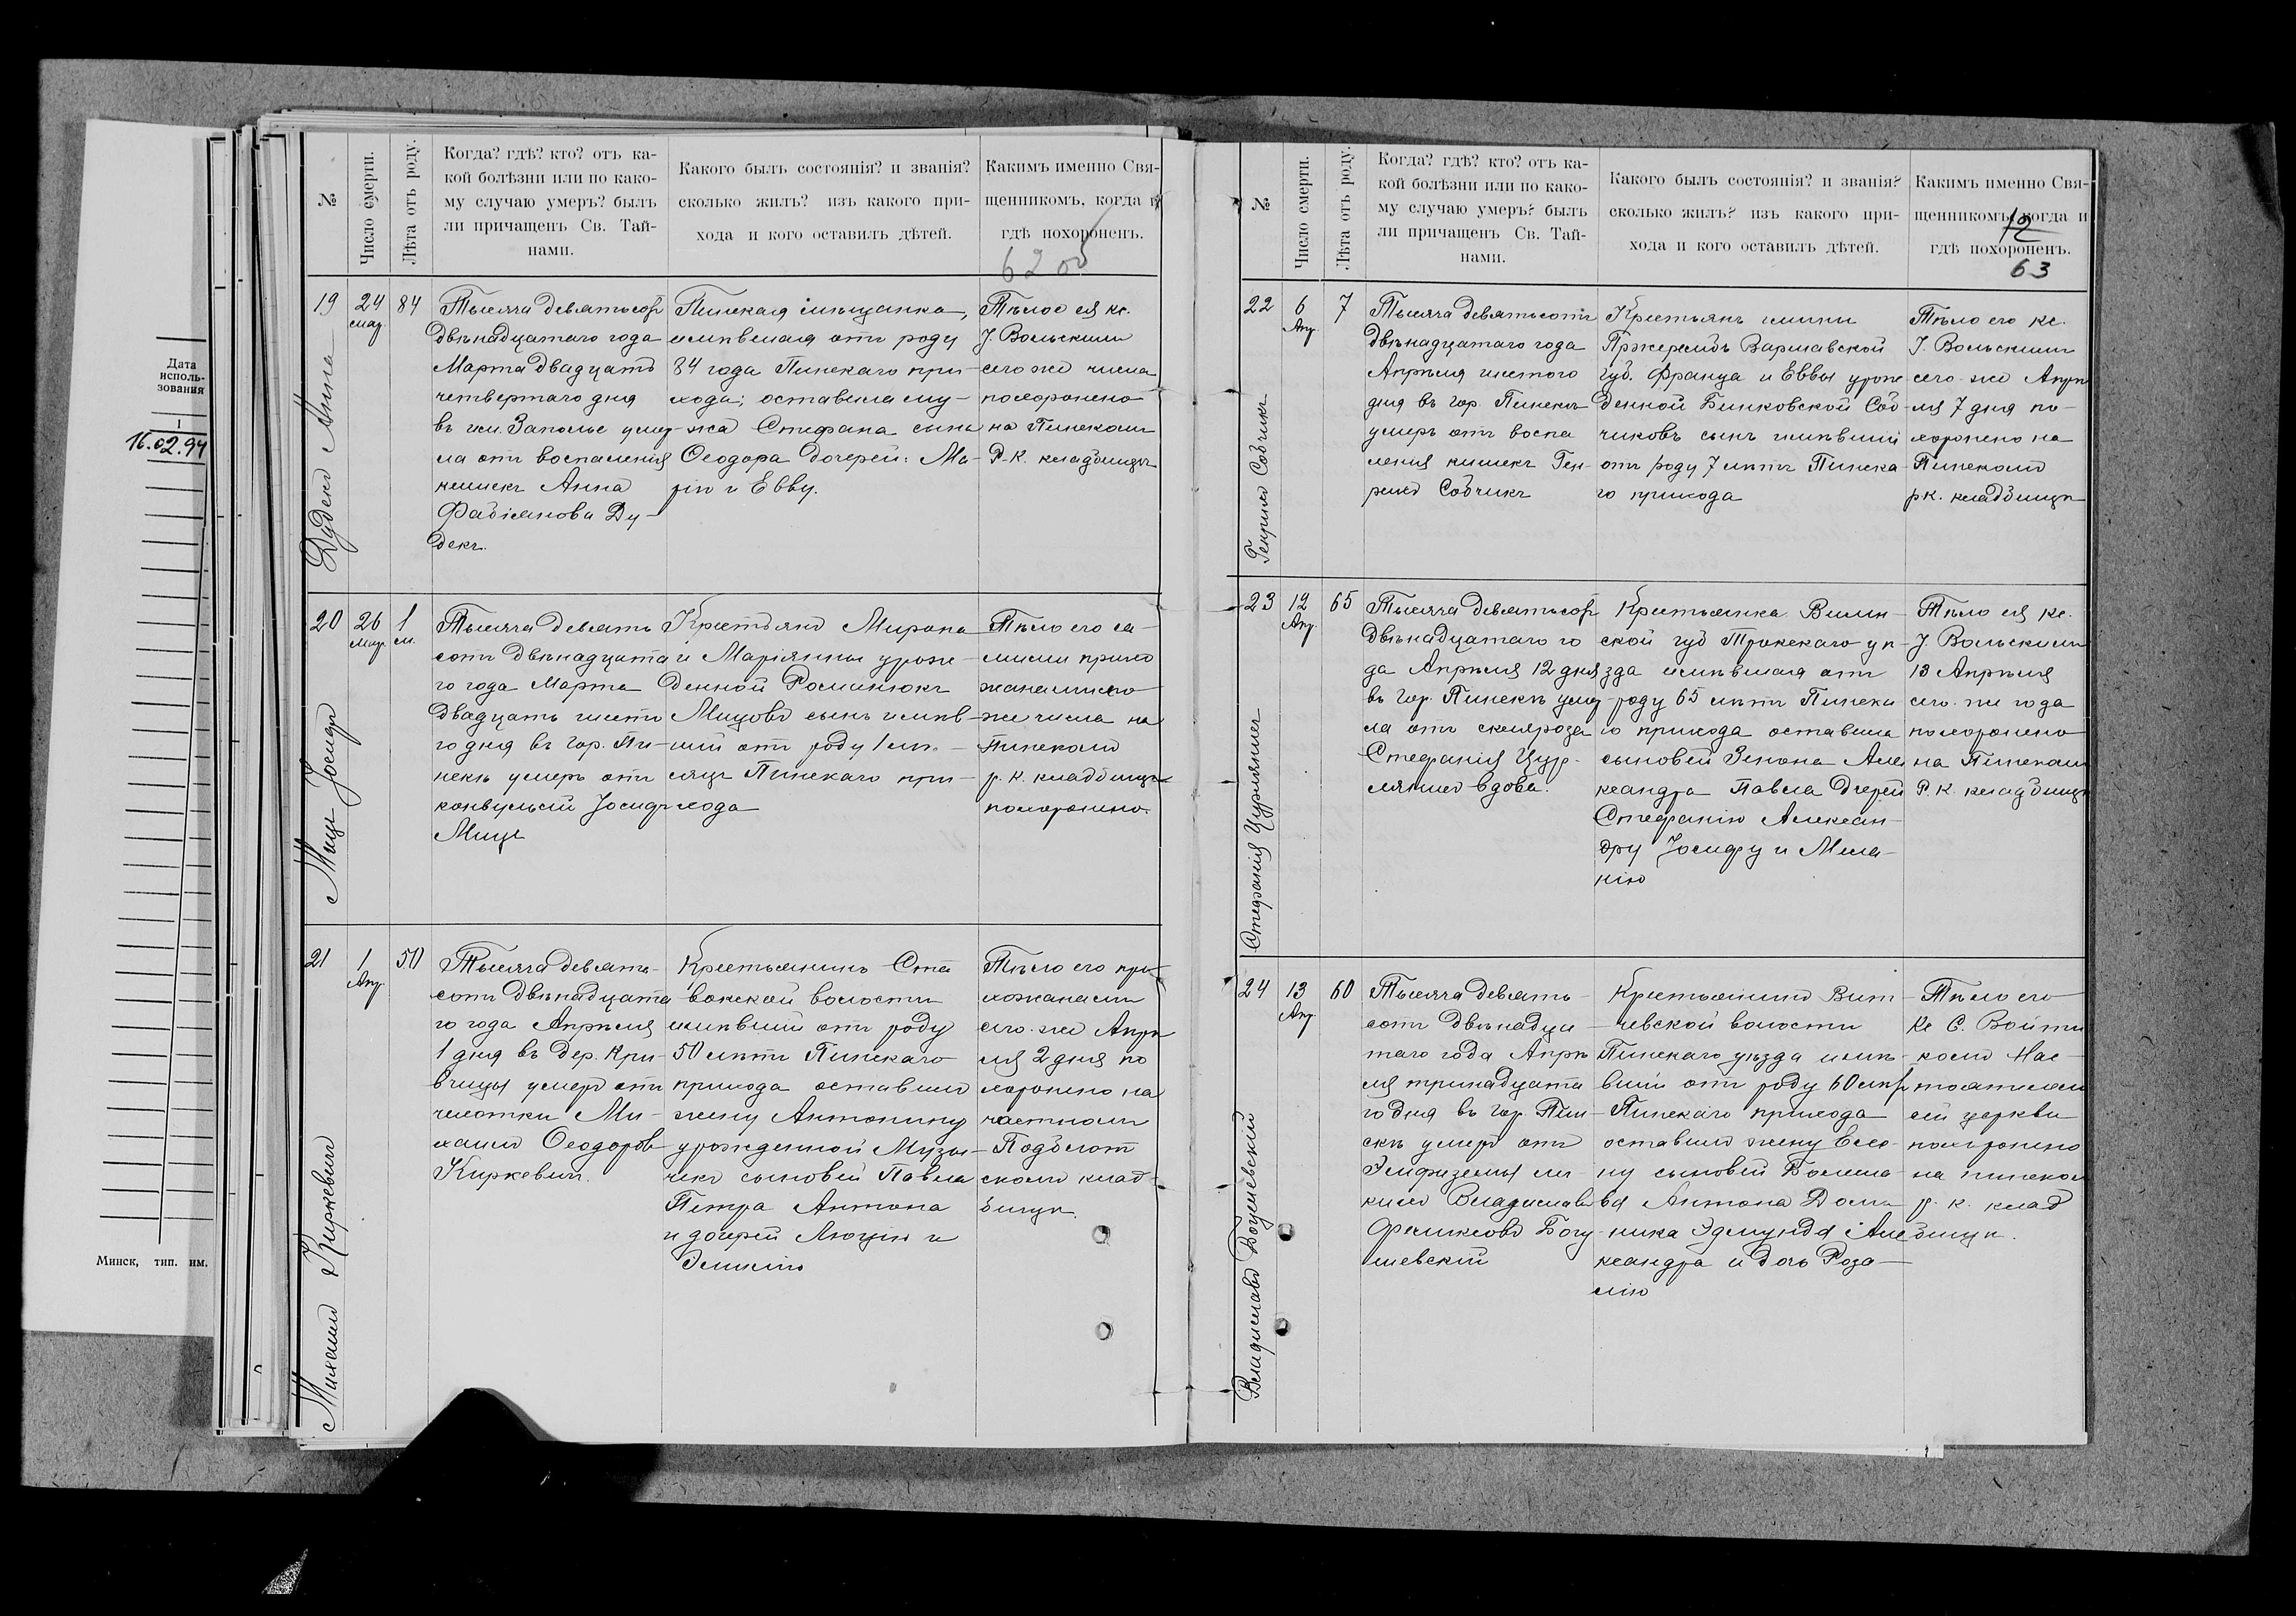 Дата
исполь-
зования
1
16.02.94
Минск, тип. им.
№
Число смерти.
Лѣта отъ роду.
Когда? гдѣ? кто? отъ ка-
кой болѣзни или по како-
му случаю умеръ? былъ
ли причащенъ Св. Тай-
нами.
Какого былъ состоянія? и званія?
сколько жилъ? изъ какого при-
хода и кого оставилъ дѣтей.
Какимъ именно Свя-
щенникомъ, когда и
гдѣ похороненъ.
62 об
19
24
мар.
84
Дудекъ Анна
Тысяча девятьсот
двѣнадцатаго года
Марта двадцать
четвертаго дня
въ им. Заполье умер-
ла отъ воспаленія
кишекъ Анна
Фабіянова Ду-
декъ.
Пинская мѣщанка,
имѣвшая отъ роду
84 года Пинскаго при-
хода; оставила му-
жа Стефана сына
Ѳеодора дочерей: Ма-
рію и Евву.
Тѣлое ея кс.
І. Вольскимъ
сего же числа
похоронено
на Пинскомъ
Р.-К. кладбищѣ
20
26
Мар.
1
м.
Мицъ Іосифъ
Тысяча девять
сотъ двѣнадцата
го года Марта
двадцать шесто
го дня въ гор. Пи-
нскѣ умеръ отъ
конвульсій Іосифъ
Мицъ
Крестьянъ Мирона
и Маріянны урож-
денной Романюкъ
Мицовъ сынъ имѣв-
шій отъ роду 1 мѣ-
сяцъ Пинскаго при-
хода
Тѣло его са-
мими прихо
жанами его
же числа на
Пинскомъ
р. к. кладбищѣ
похоронено.
21
1
Апр.
50
Михаилъ Киркевичъ
Тысяча девять-
сотъ двѣнадцата
го года Апрѣля
1 дня въ дер. Кри-
вчицы умеръ отъ
чахотки Ми-
хаилъ Ѳеодоров
Киркевич.
Крестьянинъ Ста
вокской волости
имѣвшій отъ роду
50 лѣтъ Пинскаго
прихода оставилъ
жену Антонину
урожденной Музы-
чекъ сыновей Павла
Петра Антона
и дочерей Люцію и
Эмилію
Тѣло его при-
хожанами
сего-же Апрѣ
ля 2 дня по
хоронено на
частномъ
Подболот
скомъ клад-
бищѣ.
№
Число смерти.
Лѣта отъ роду.
Когда? гдѣ? кто? отъ ка-
кой болѣзни или по како-
му случаю умеръ? былъ
ли причащенъ Св. Тай-
нами.
Какого былъ состоянія? и званія?
сколько жилъ? изъ какого при-
хода и кого оставилъ дѣтей.
Какимъ именно Свя-
щенникомъ, когда и
гдѣ похороненъ.
12
63
22
6
Апр.
7
Генрихъ Собчикъ
Тысяча девятьсотъ
двѣнадцатаго года
Апрѣля шестого
дня въ гор. Пинскѣ
умеръ отъ воспа
ленія кишекъ Ген-
рихъ Собчикъ
Крестьянъ гмины
Пржерембъ Варшавской
губ. Франца и Еввы урож
денной Бинковской Соб
чиковъ сынъ имѣвшій
отъ роду 7 лѣтъ Пинска
го прихода
Тѣло его кс.
І. Вольскимъ
сего-же Апрѣ
ля 7 дня по-
хоронено на
Пинскомъ
р к. кладбищѣ
23
12
Апр.
65
Стефанія Цурлянисъ
Тысяча девятьсот
двѣнадцатаго го
да Апрѣля 12 дня
въ гор. Пинскѣ умер
ла отъ склероза
Стефанія Цур-
лянисъ вдова.
Крестьянка Вилен-
ской губ Трокскаго уѣ-
зда имѣвшая отъ
роду 65 лѣтъ Пинска
го прихода оставила
сыновей Зенона Але
ксандра Павла дчерей
Стефанію Алексан-
дру Іосифу и Мела-
нію
Тѣло ея кс.
І. Вольскимъ
13 Апрѣля
сего-же года
похоронено
на Пинскомъ
Р. К кладбищѣ
24
13
Апр.
60
Владиславъ Богушевскій
Тысяча девять-
сотъ двѣнадца-
таго года Апрѣ
ля тринадцата
го дня въ гор. Пин-
скѣ умеръ отъ
Эмфиземы ле-
кихъ Владиславъ
Феликсовъ Богу-
шевскій
Крестьянинъ Вит-
чевской волости
Пинскаго уѣзда имѣ-
вшій отъ роду 60 лѣт
Пинскаго прихода
оставилъ жену Еле-
ну сыновей Болесла-
ва Антона Доми-
ника Эдмунда і Але
ксандра и дочь Роза-
лію
Тѣло его
Кс С. Войти
комъ Нас-
тоятелем
сей церкви
похоронено
на пинском
р. к. клад
бищѣ.